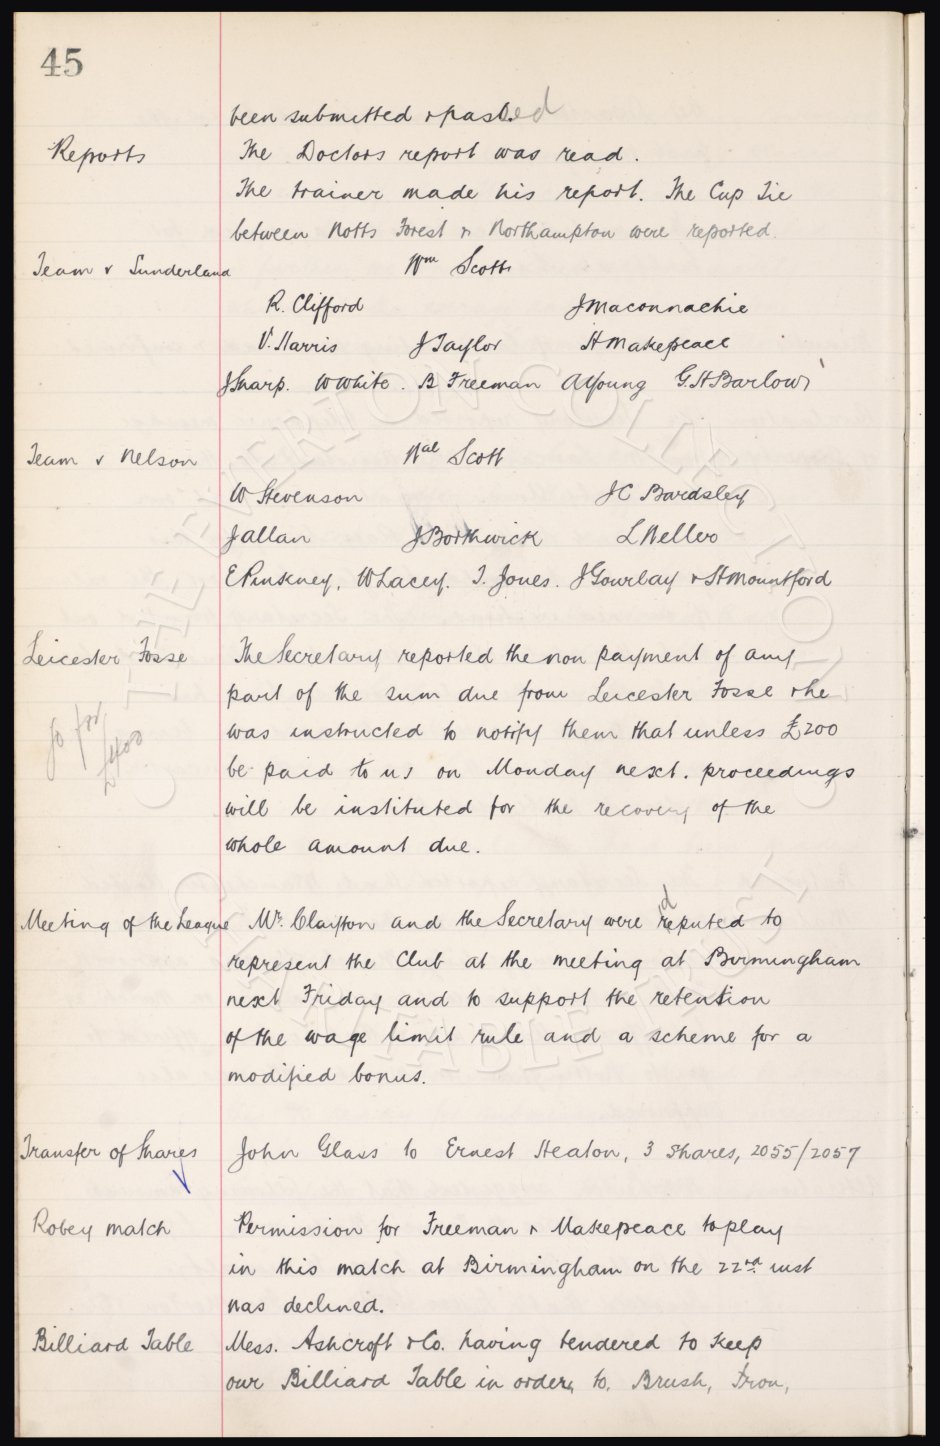 45
been submitted & passed
Reports The Doctors report was read.
The trainer made his report. The Cup Tie
between Notts Forest & Northampton were reported.
Team v Sunderland Wm Scott
R. Clifford J Maconnachie
V. Harris J Taylor H Makepeace
J Sharp. W White. B Freeman A Young G.H Barlow
Team v Nelson Wal Scott
W Stevenson J C Bardsley
J Allan J Borthwick L Weller
E Pinkney, W Lacey. T. Jones. J Gourlay & H Mountford
Leicester Fosse The Secretary reported the non payment of any
part of the sum due from Leicester Fosse & he
was instructed to notify them that unless £200
be paid to us on Monday next. proceedings
will be instituted for the recovery of the
whole amount due.
Meeting of the League Mr. Clayton and the Secretary were deputed to
represent the Club at the meeting at Birmingham
next Friday and to support the retention
of the wage limit rule and a scheme for a
modified bonus.
Transfer of Shares John Glass to Ernest Heaton, 3 Shares, 2055/2057
Robey match Permission for Freeman & Makepeace to play
in this match at Birmingham on the 22nd inst
was declined.
Billiard Table Mess. Ashcroft & Co. having tendered to keep
our Billiard Table in order, to, Brush, Iron,
THE EVERTON COLLECTION
CHARITABLE TRUST